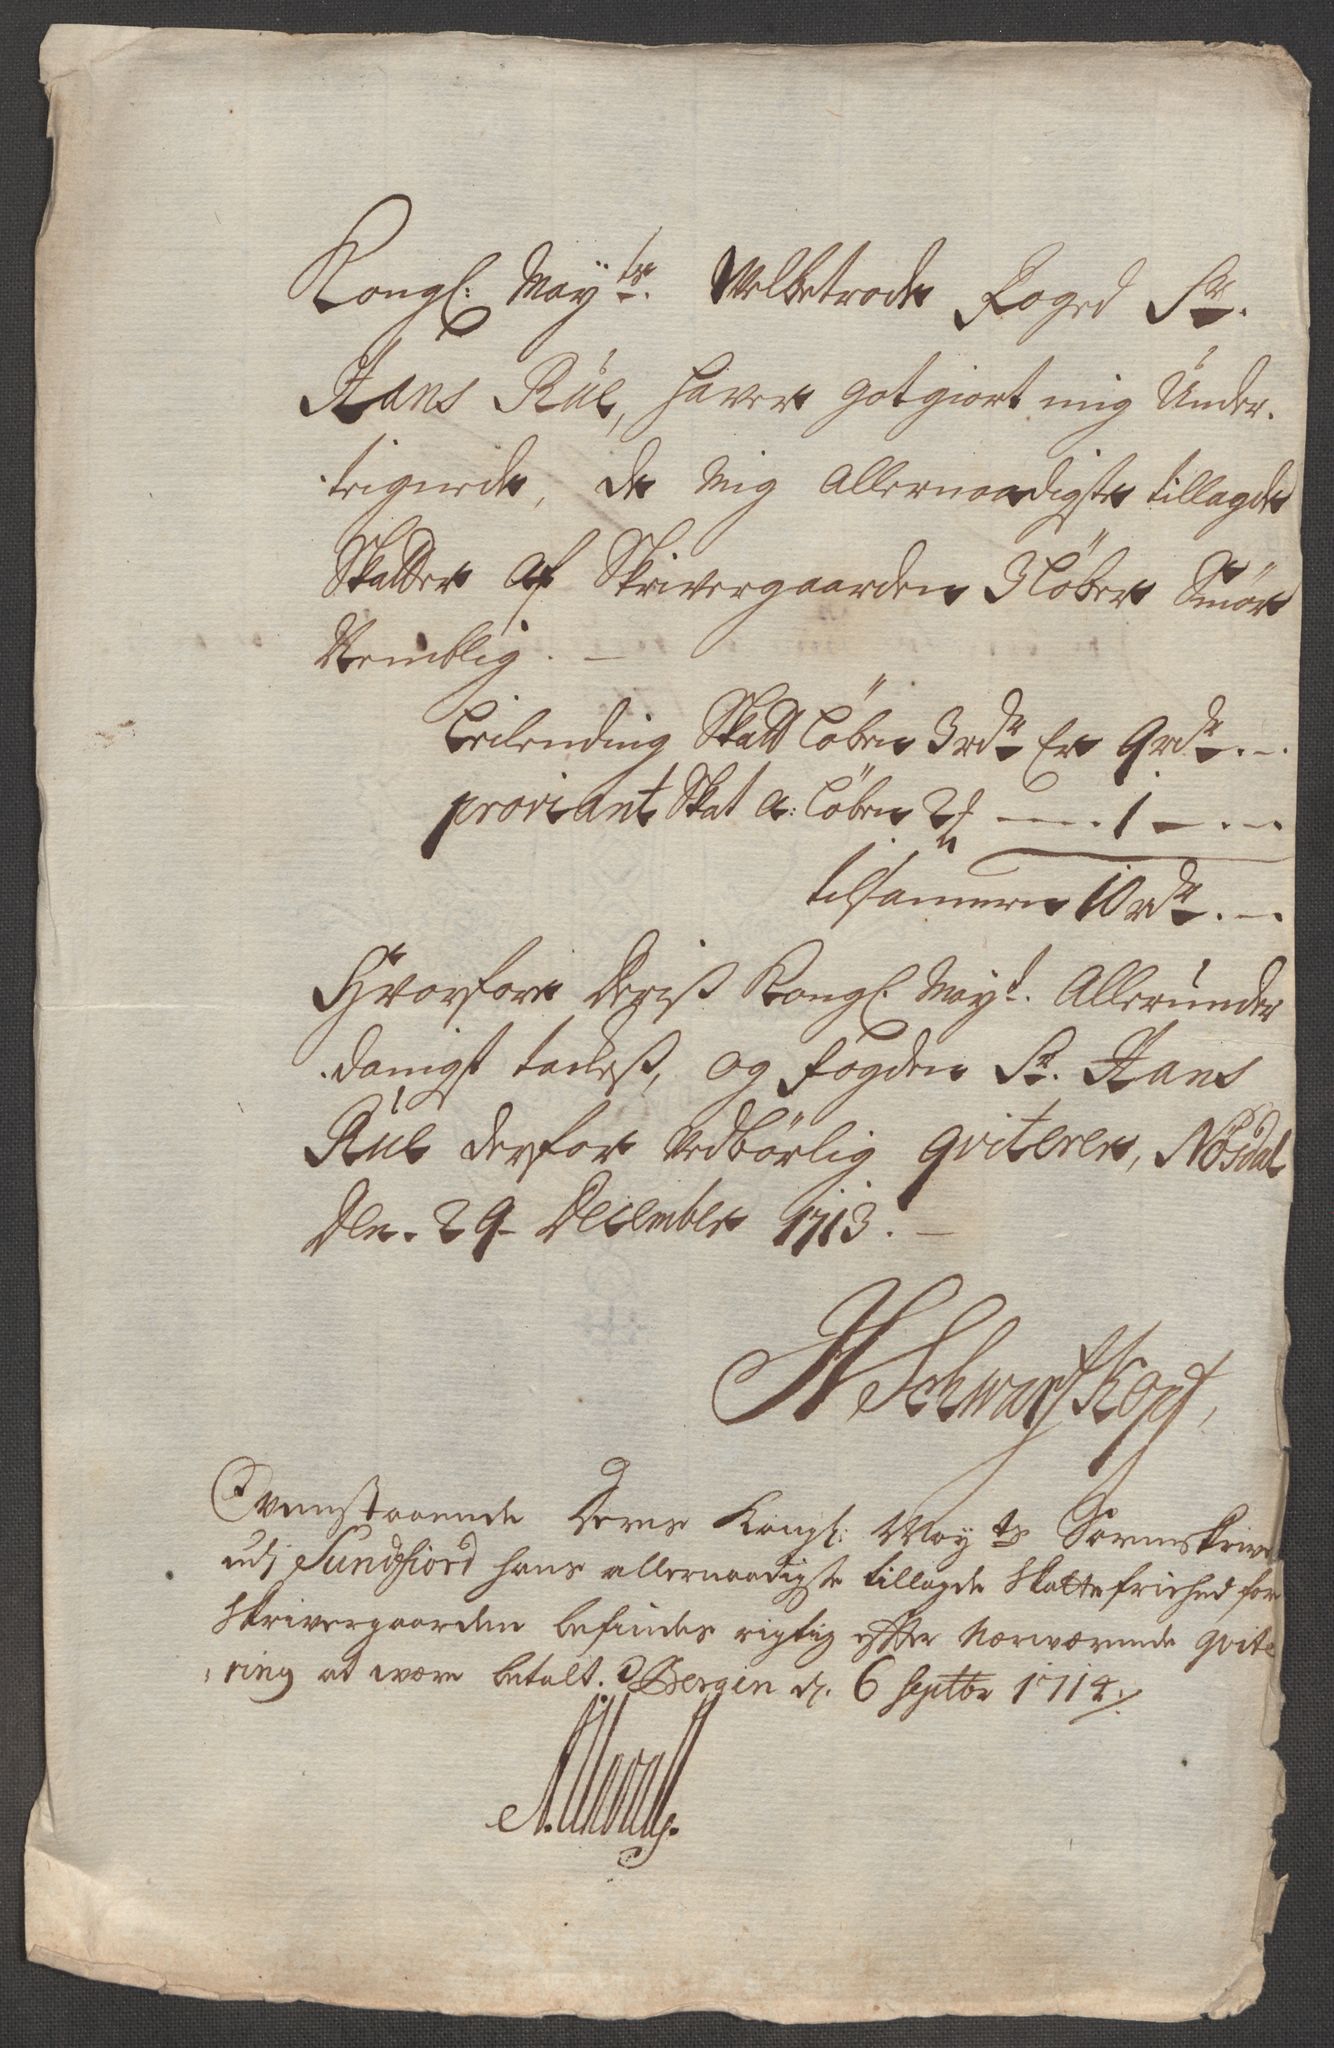 Kongl: May:ts Velbetrode Foged Sr.
Hans Rüe, haver gotgiort mig Under-
teignede, de mig Allernaadigste tillagde
Skatter af Skrivergaarden 3 Løber Smør
Nemblig. —
Leilending Skatt Løben 3 rdr Er 9 rdr. —
proviant Skat a: Løben 2 — 1 —
tilsammen 10 rdr. —
Hvorfore Deriß Kongl. Mayt. Allerunder
danigst tackeß, og fogden Sr. Hans
Rüe derfor vedbørlig qviterer, Nøsdal
Den. 29 December 1713. —
H Schwartzkopf,
Ovenstaaende Deres Kongl: May ts Sorenskriver
udj Sundfiord hans allernaadigste tillagde Skattefriehed for
Skrivergaarden befindes rigtig efter nærværende qvite
ring at være betalt. Bergen d. 6 Septbr 1714.